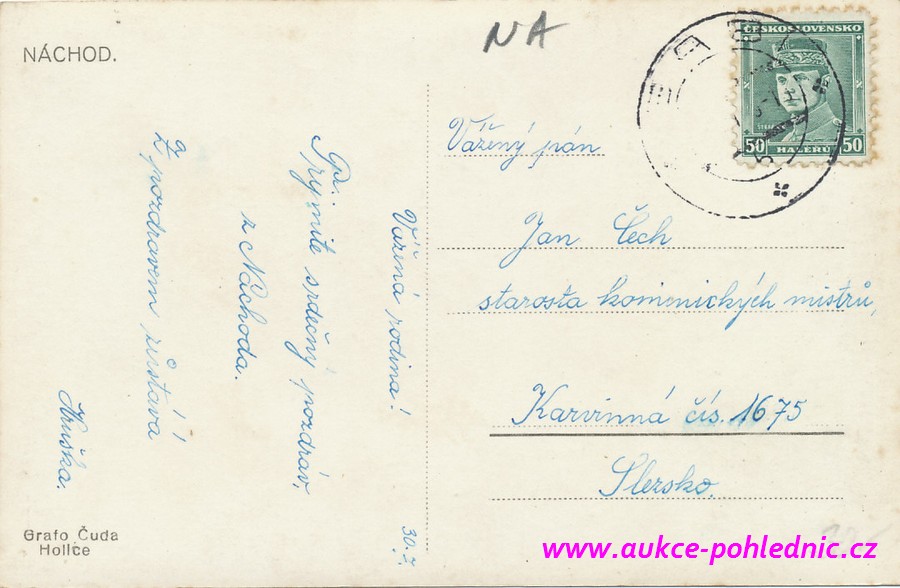 NÁCHOD.
NA
ČESKOSLOVENSKO
50 HALÉŘŮ 50
Vážený pán
Jan Čech
starosta kominických mistrů,
Karvinná čís. 1675
Slezsko.
30.7.
Vážená rodina!
Přijmite srdečný pozdrav,
z Náchoda.
a
Z pozdravem zůstává
Hruška.
Grafo Čuda
Holice
www.aukce-pohlednic.cz